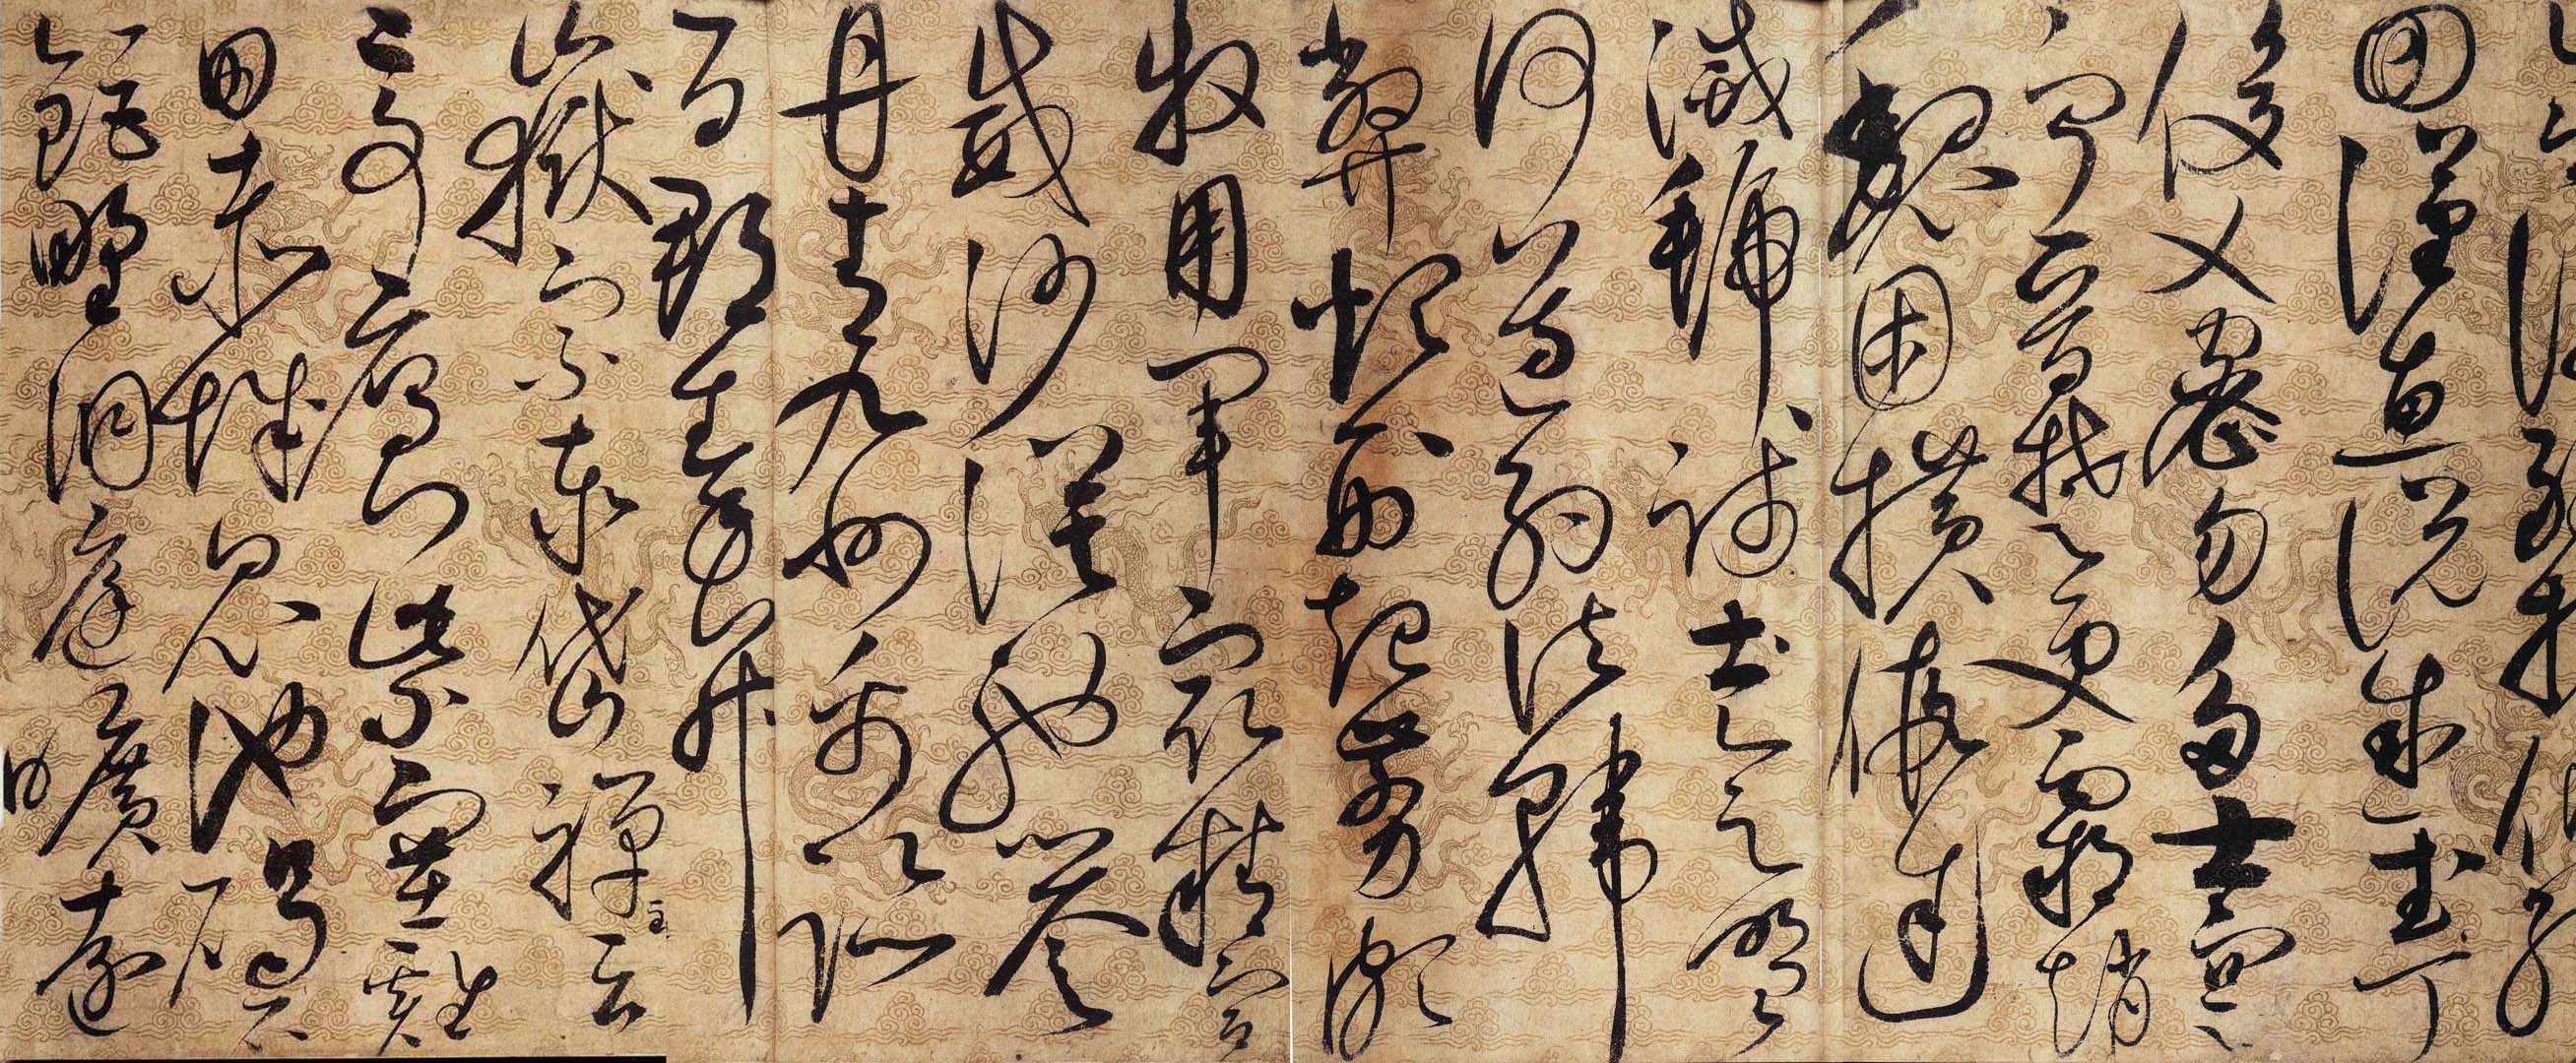 濟弱扶傾
回漢惠說感武丁
俊乂密勿多士寔
寧晉楚更霸趙
魏困橫假途
滅虢踐土會盟
何遵約法韓
弊煩刑起翦頗
牧用軍最精宣
威沙漠馳譽
丹青九州禹跡
百郡秦并
嶽宗泰岱禪主云
亭雁門紫塞雞
田赤城昆池碣石
鉅野洞庭曠遠